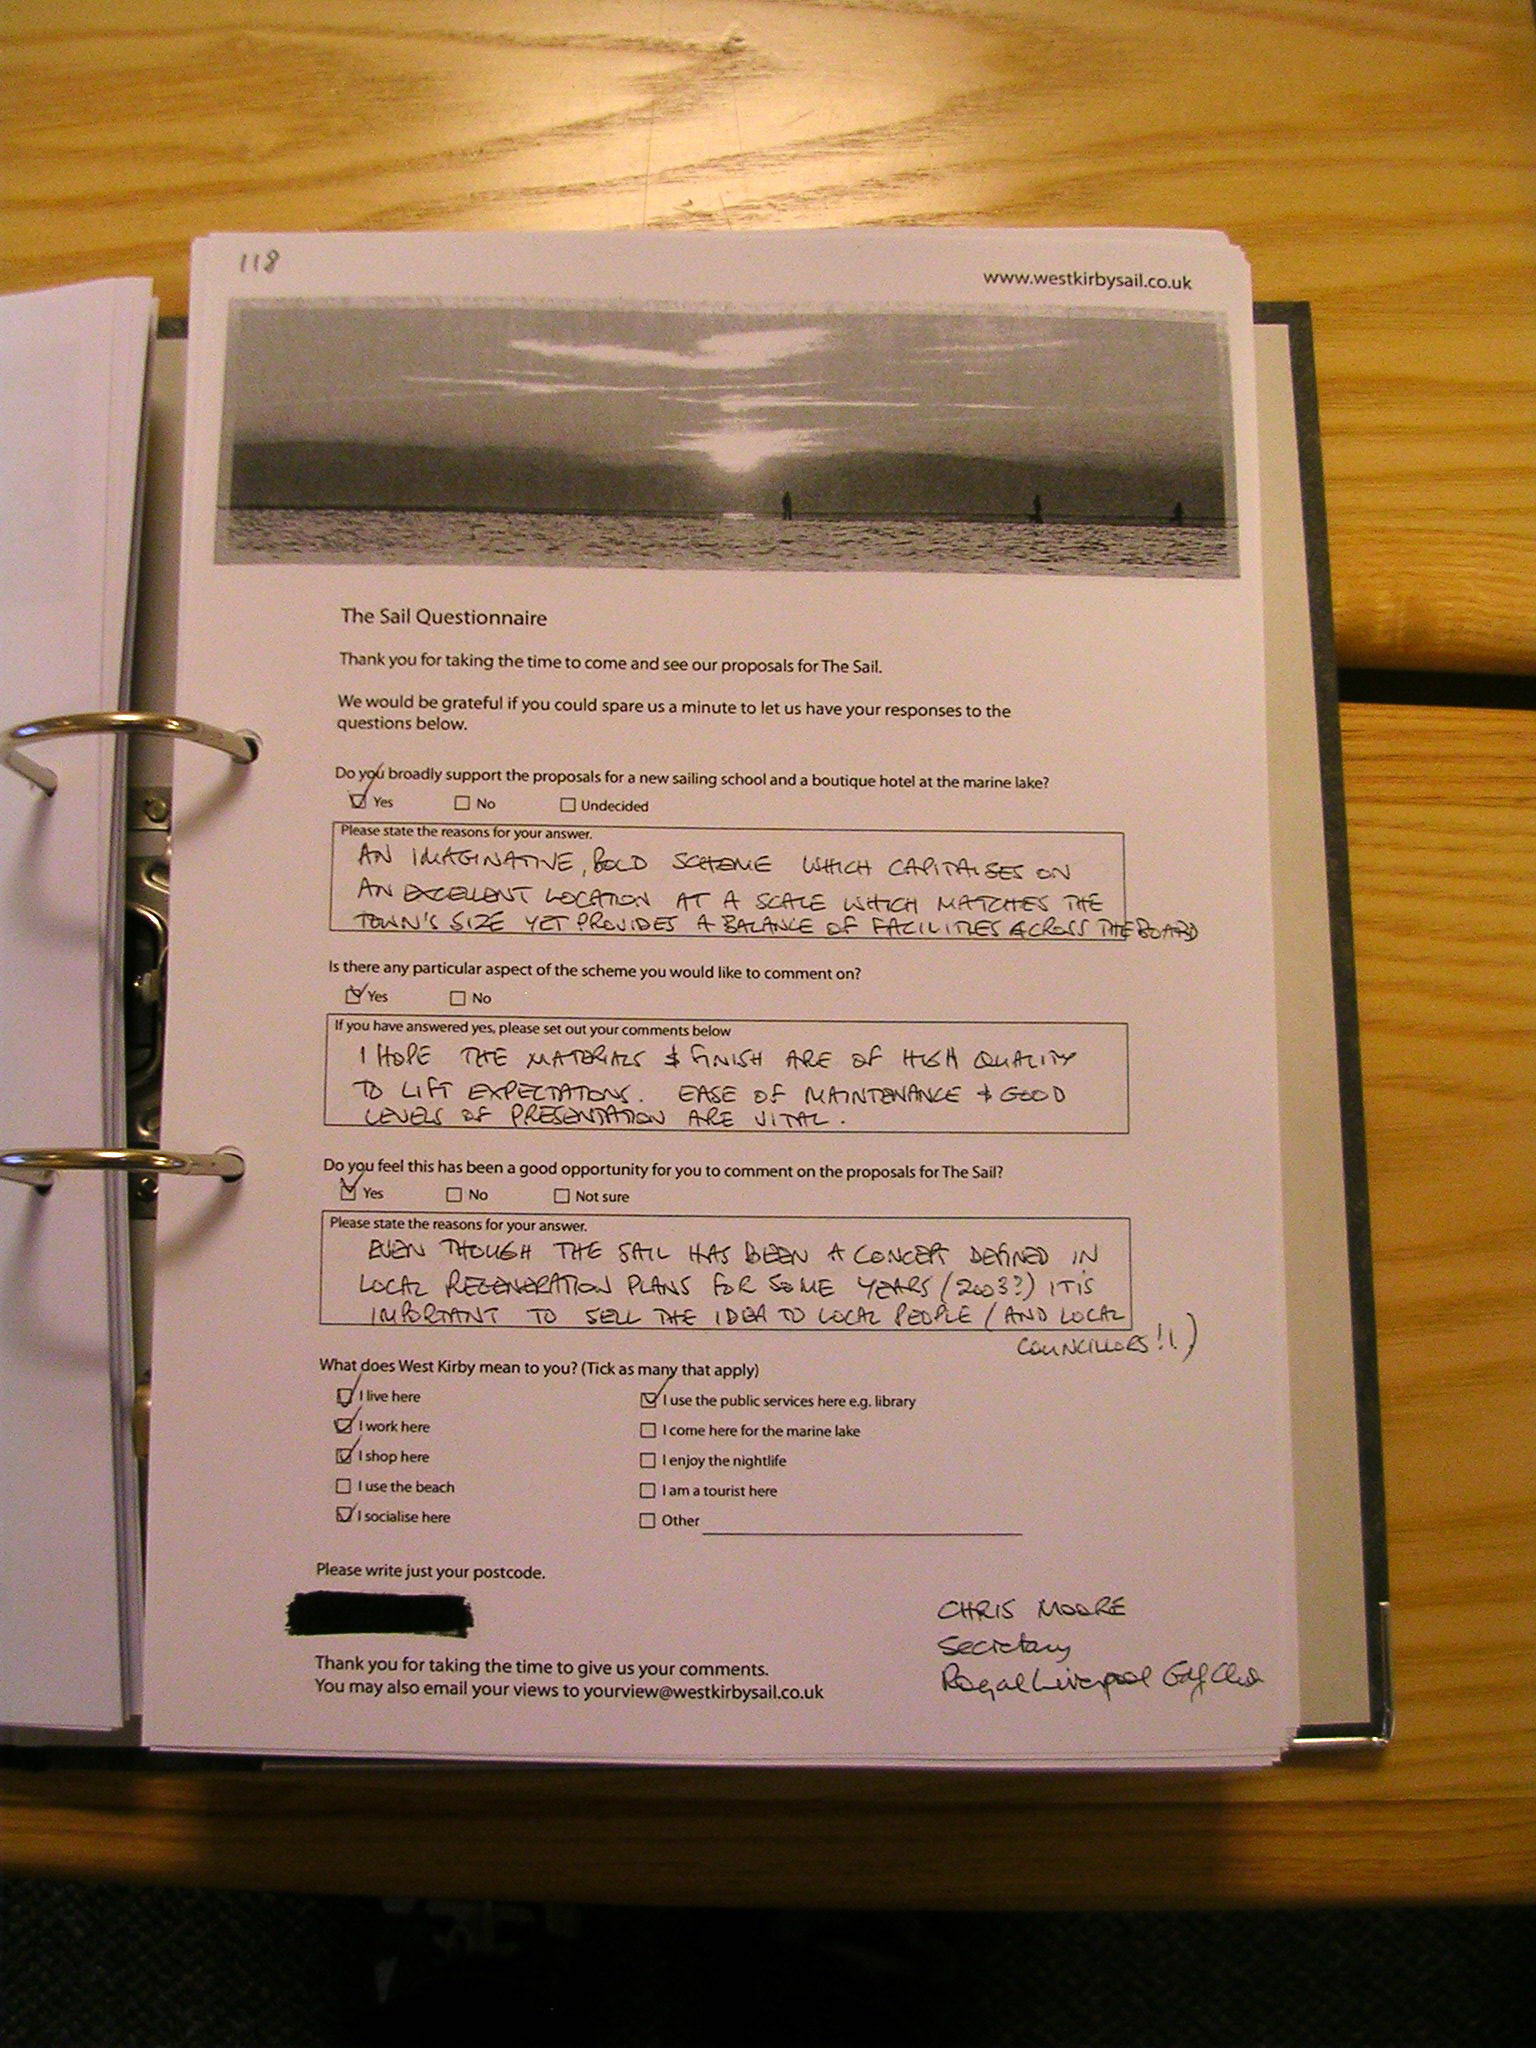 118
www.westkirbysail.co.uk
The Sail Questionnaire
Thank you for taking the time to come and see our proposals for The Sail.
We would be grateful if you could spare us a minute to let us have your responses to the
questions below.
Do you broadly support the proposals for a new sailing school and a boutique hotel at the marine lake?
Yes No Undecided
Please state the reasons for your answer.
AN IMAGINATIVE, BOLD SCHEME WHICH CAPITALISES ON
AN EXCELLENT LOCATION AT A SCALE WHICH MATCHES THE
TOWN'S SIZE YET PROVIDES A BALANCE OF FACILITIES ACROSS THE BOARD
Is there any particular aspect of the scheme you would like to comment on?
Yes No
If you have answered yes, please set out your comments below
I HOPE THE MATERIALS & FINISH ARE OF HIGH QUALITY
TO LIFT EXPECTATIONS. EASE OF MAINTENANCE & GOOD
LEVELS OF PRESENTATION ARE VITAL.
Do you feel this has been a good opportunity for you to comment on the proposals for The Sail?
Yes No Not sure
Please state the reasons for your answer.
EVEN THOUGH THE SAIL HAS BEEN A CONCEPT DEFINED IN
LOCAL REGENERATION PLANS FOR SOME YEARS (2003?) IT IS
IMPORTANT TO SELL THE IDEA TO LOCAL PEOPLE (AND LOCAL
COUNCILLORS!!)
What does West Kirby mean to you? (Tick as many that apply)
I live here I use the public services here e.g. library
I work here I come here for the marine lake
I shop here I enjoy the nightlife
I use the beach I am a tourist here
I socialise here Other
Please write just your postcode.
CHRIS MOORE
Secretary
Royal Liverpool Golf Club
Thank you for taking the time to give us your comments.
You may also email your views to yourview@westkirbysail.co.uk